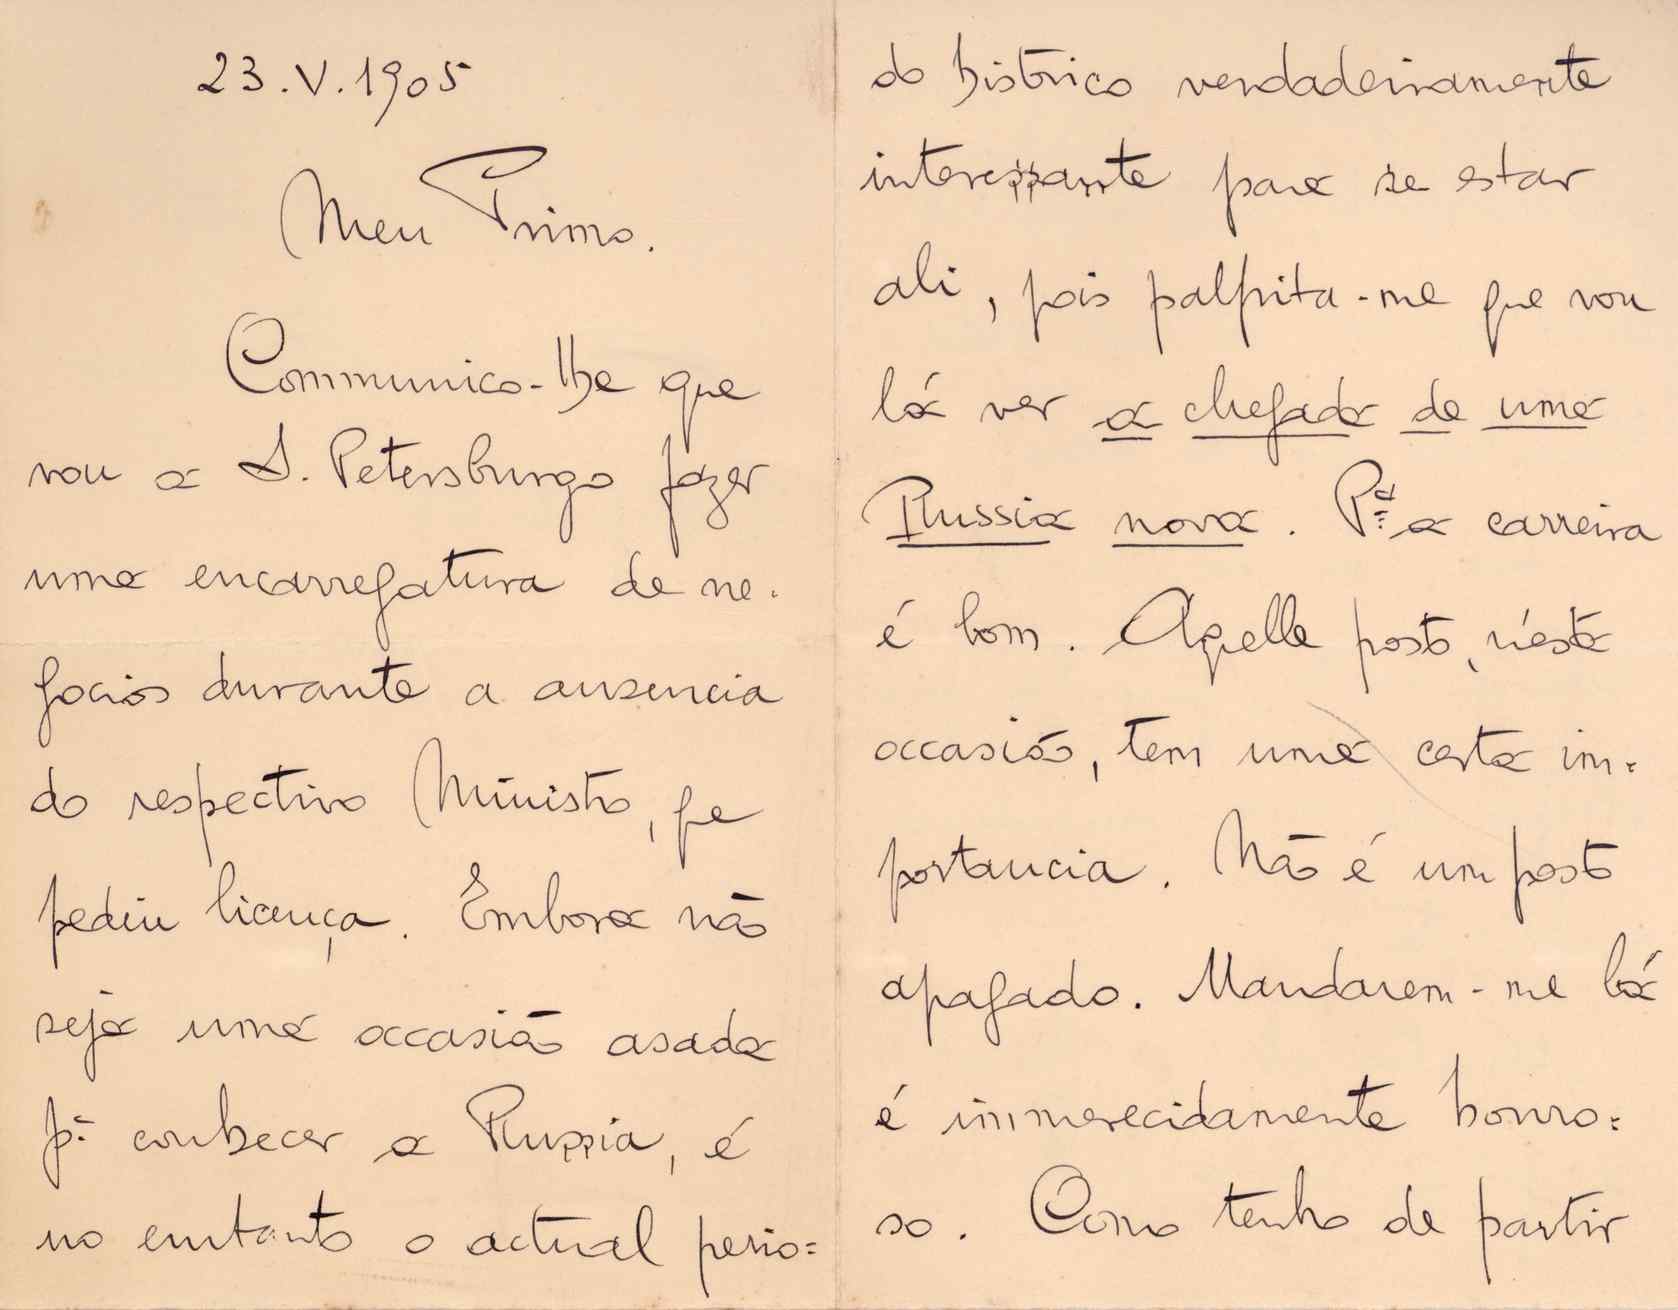 23.V.1905
Meu Primo.
Communico-lhe que
vou a S. Petersburgo fazer
uma encarregatura de ne-
gocios durante a ausencia
do respectivo Ministro, qe
pediu licença. Embora não
seja uma occasião asada
pª conhecer a Russia, é
no emtanto o actual perio=
do historico verdadeiramente
interessante para se estar
ali, pois palpita-me que vou
lá ver a chegada de uma
Russia nova. Pª a carreira
é bom. Aquelle posto, n'esta
occasião, tem uma certa im=
portancia. Não é um posto
apagado. Mandarem-me lá
é immerecidamente honro=
so. Como tenho de partir